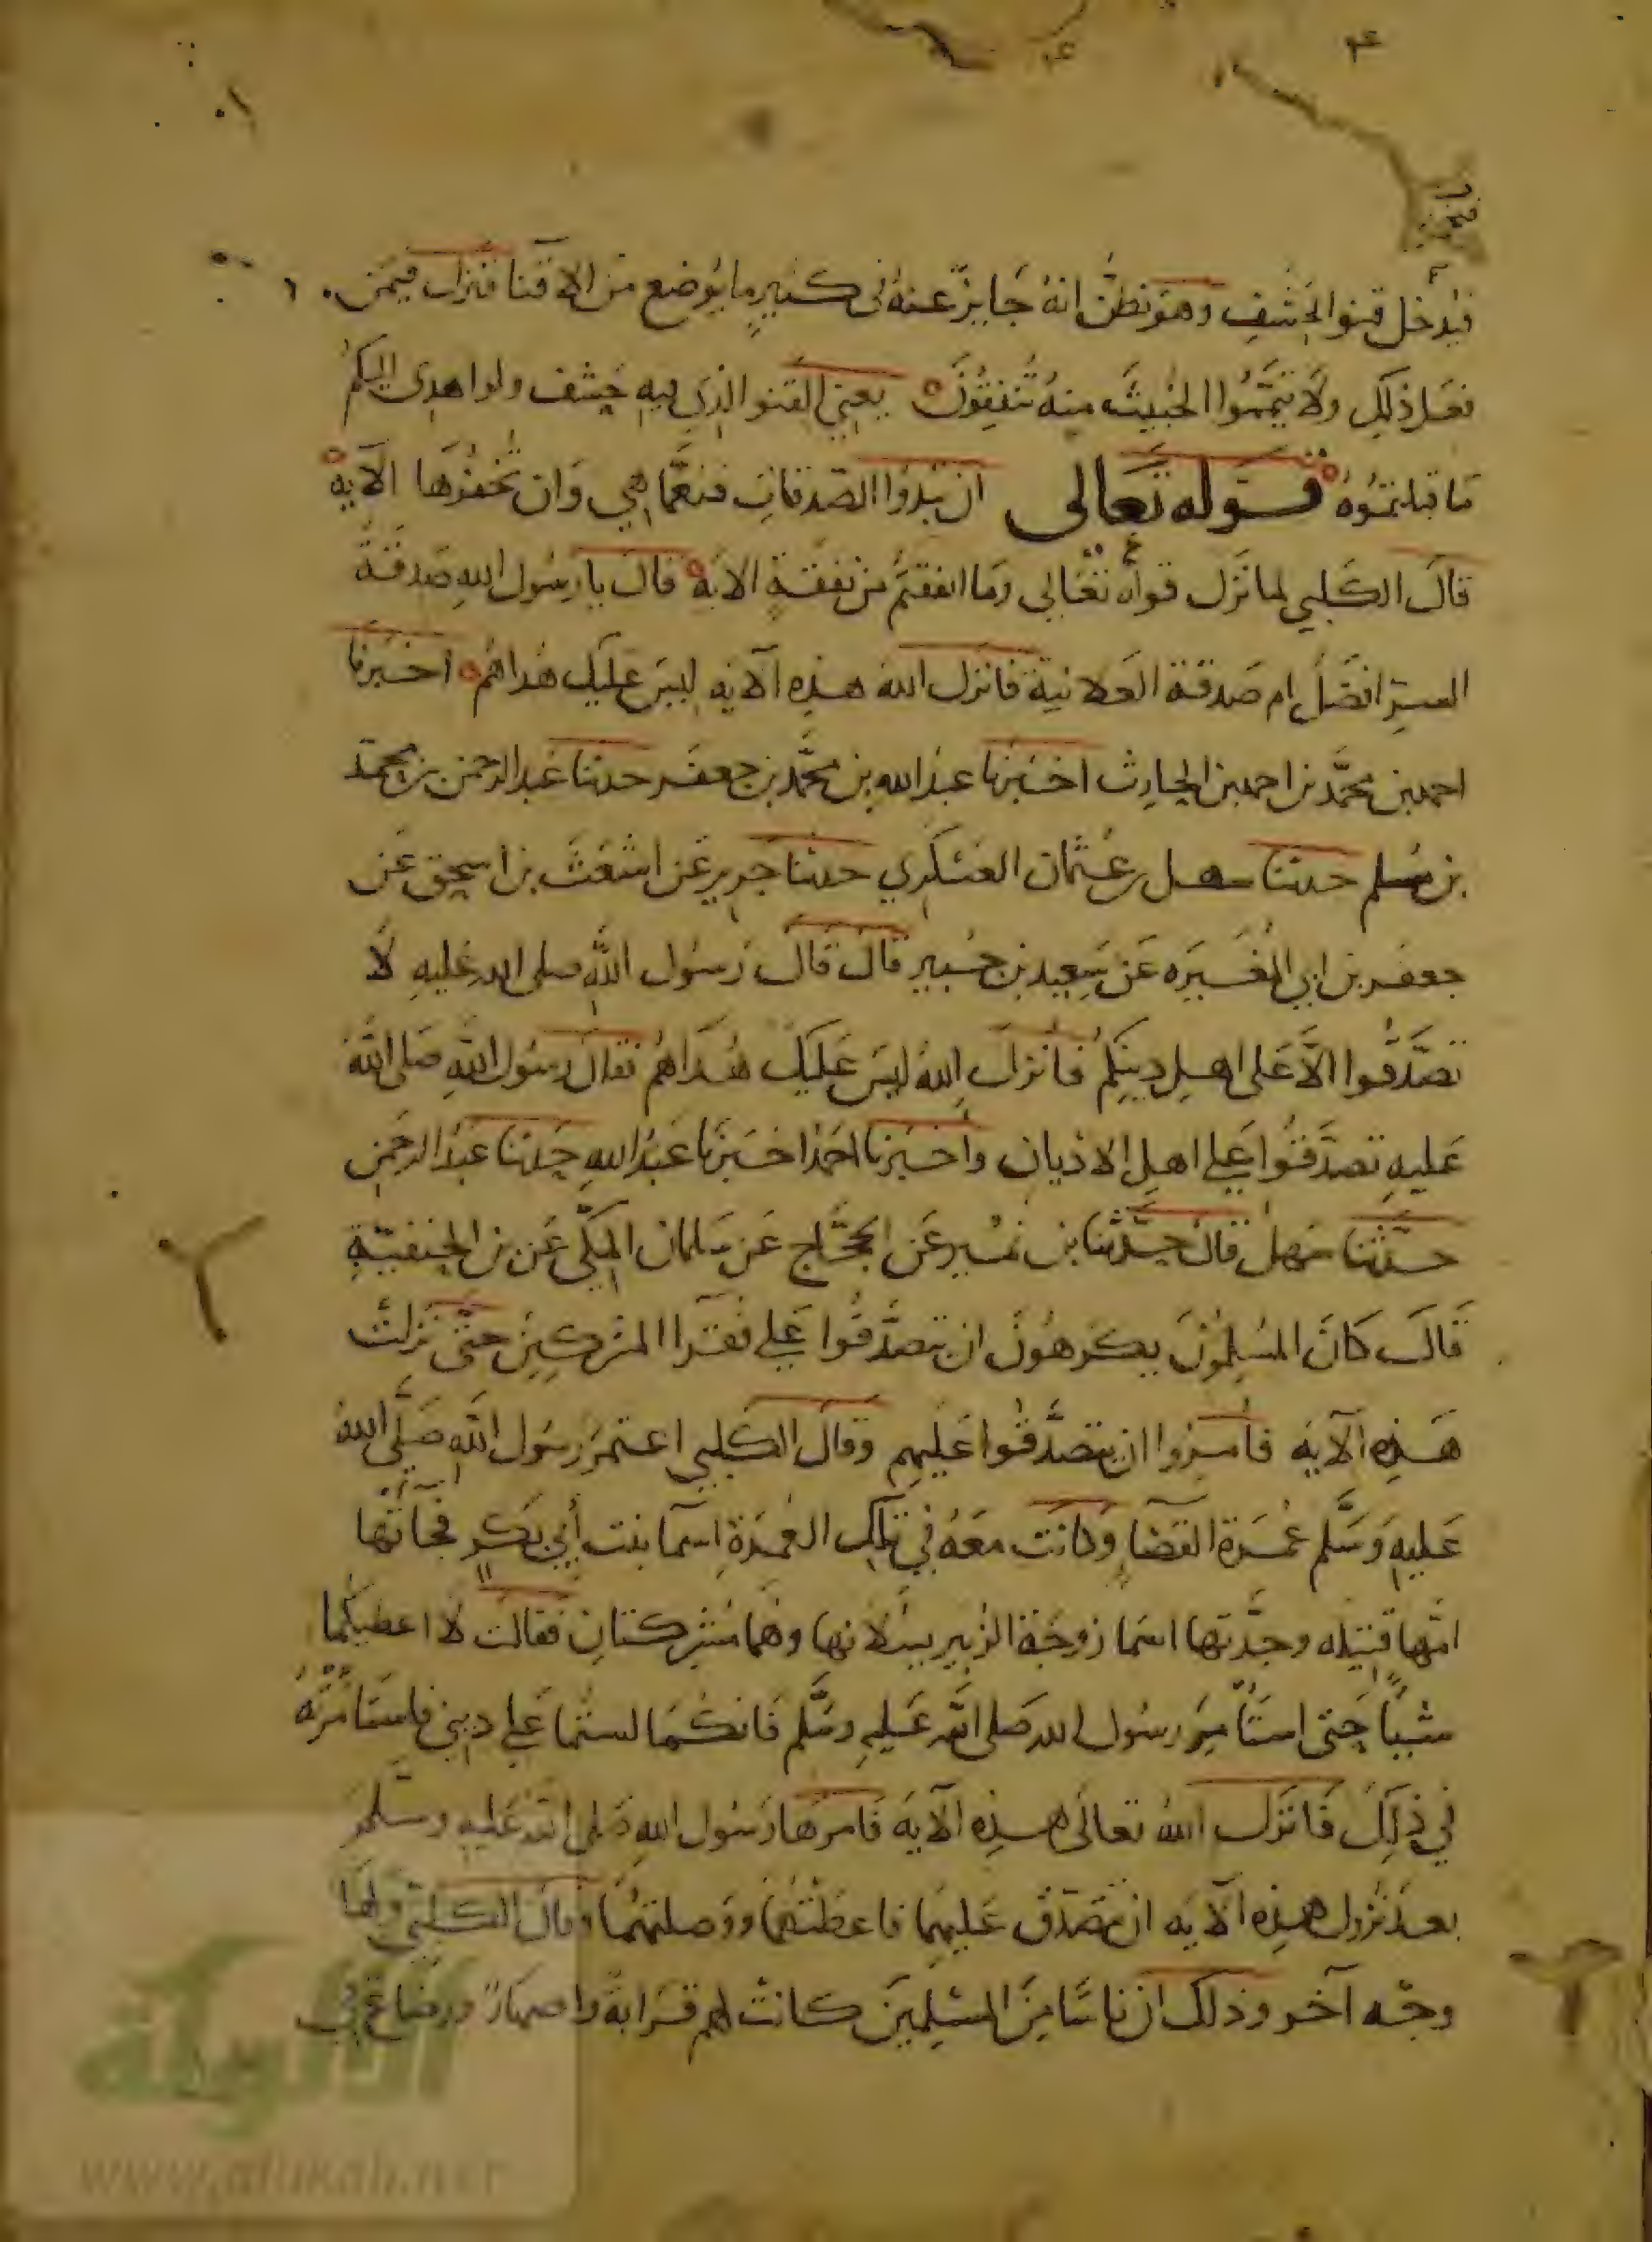 فيدخل قنو الحشف وهو يظن انه جايز عنه في كثير ما يوضع من الاقنا فنزلت فيمن
فعل ذلك ولا تيمموا الخبيث منه تنفقون يعني القنو الذي فيه حشف ولو اهدى اليكم
ما قبلتموه قوله تعالى ان تبدوا الصدقات فنعما هي وان تخفوها الآيه
قال الكلبي لما نزل قوله تعالى وما انفقتم من نفقة الايه قال يا رسول الله صدقة
السر افضل ام صدقة العلانية فانزل الله هذه الآيه ليس عليك هداهم اخبرنا
احمد بن محمد بن احمد بن الحارث اخبرنا عبد الله بن محمد بن جعفر حدثنا عبد الرحمن بن محمد
بن مسلم حدثنا سهل بن عثمان العسكري حدثنا جرير عن اشعث بن اسحق عن
جعفر بن ابي المغيره عن سعيد بن جبير قال قال رسول الله صلى الله عليه لا
تصدقوا الا على اهل دينكم فانزل الله ليس عليك هداهم فقال رسول الله صلى الله
عليه تصدقوا على اهل الاديان واخبرنا احمد اخبرنا عبد الله حدثنا عبد الرحمن
حدثنا سهل قال حدثنا بن نمير عن الحجاج عن سلمان المكي عن بن الحنفية
قال كان المسلمون يكرهون ان يتصدقوا على فقرا المشركين حتى نزلت
هذه الآيه فامروا ان يتصدقوا عليهم وقال الكلبي اعتمر رسول الله صلى الله
عليه وسلم عمرة القضا وكانت معه في تلك العمرة اسما بنت أبي بكر فجاتها
امها قتيله وجدتها اسما زوجة الزبير يسلانها وهما مشركتان فقالت لا اعطيكما
شيئا حتى استأمر رسول الله صلى الله عليه وسلم فانكما لستما على ديني فاستامرته
في ذلك فانزل الله تعالى هذه الآيه فامرها رسول الله صلى الله عليه وسلم
بعد نزول هذه الآيه ان تتصدق عليهما فاعطتهما ووصلتهما وقال الكلبي ولها
وجه آخر وذلك ان ناسا من المسلمين كانت لهم قرابة واصهار ورضاع في
الألوكة
www.alukah.net